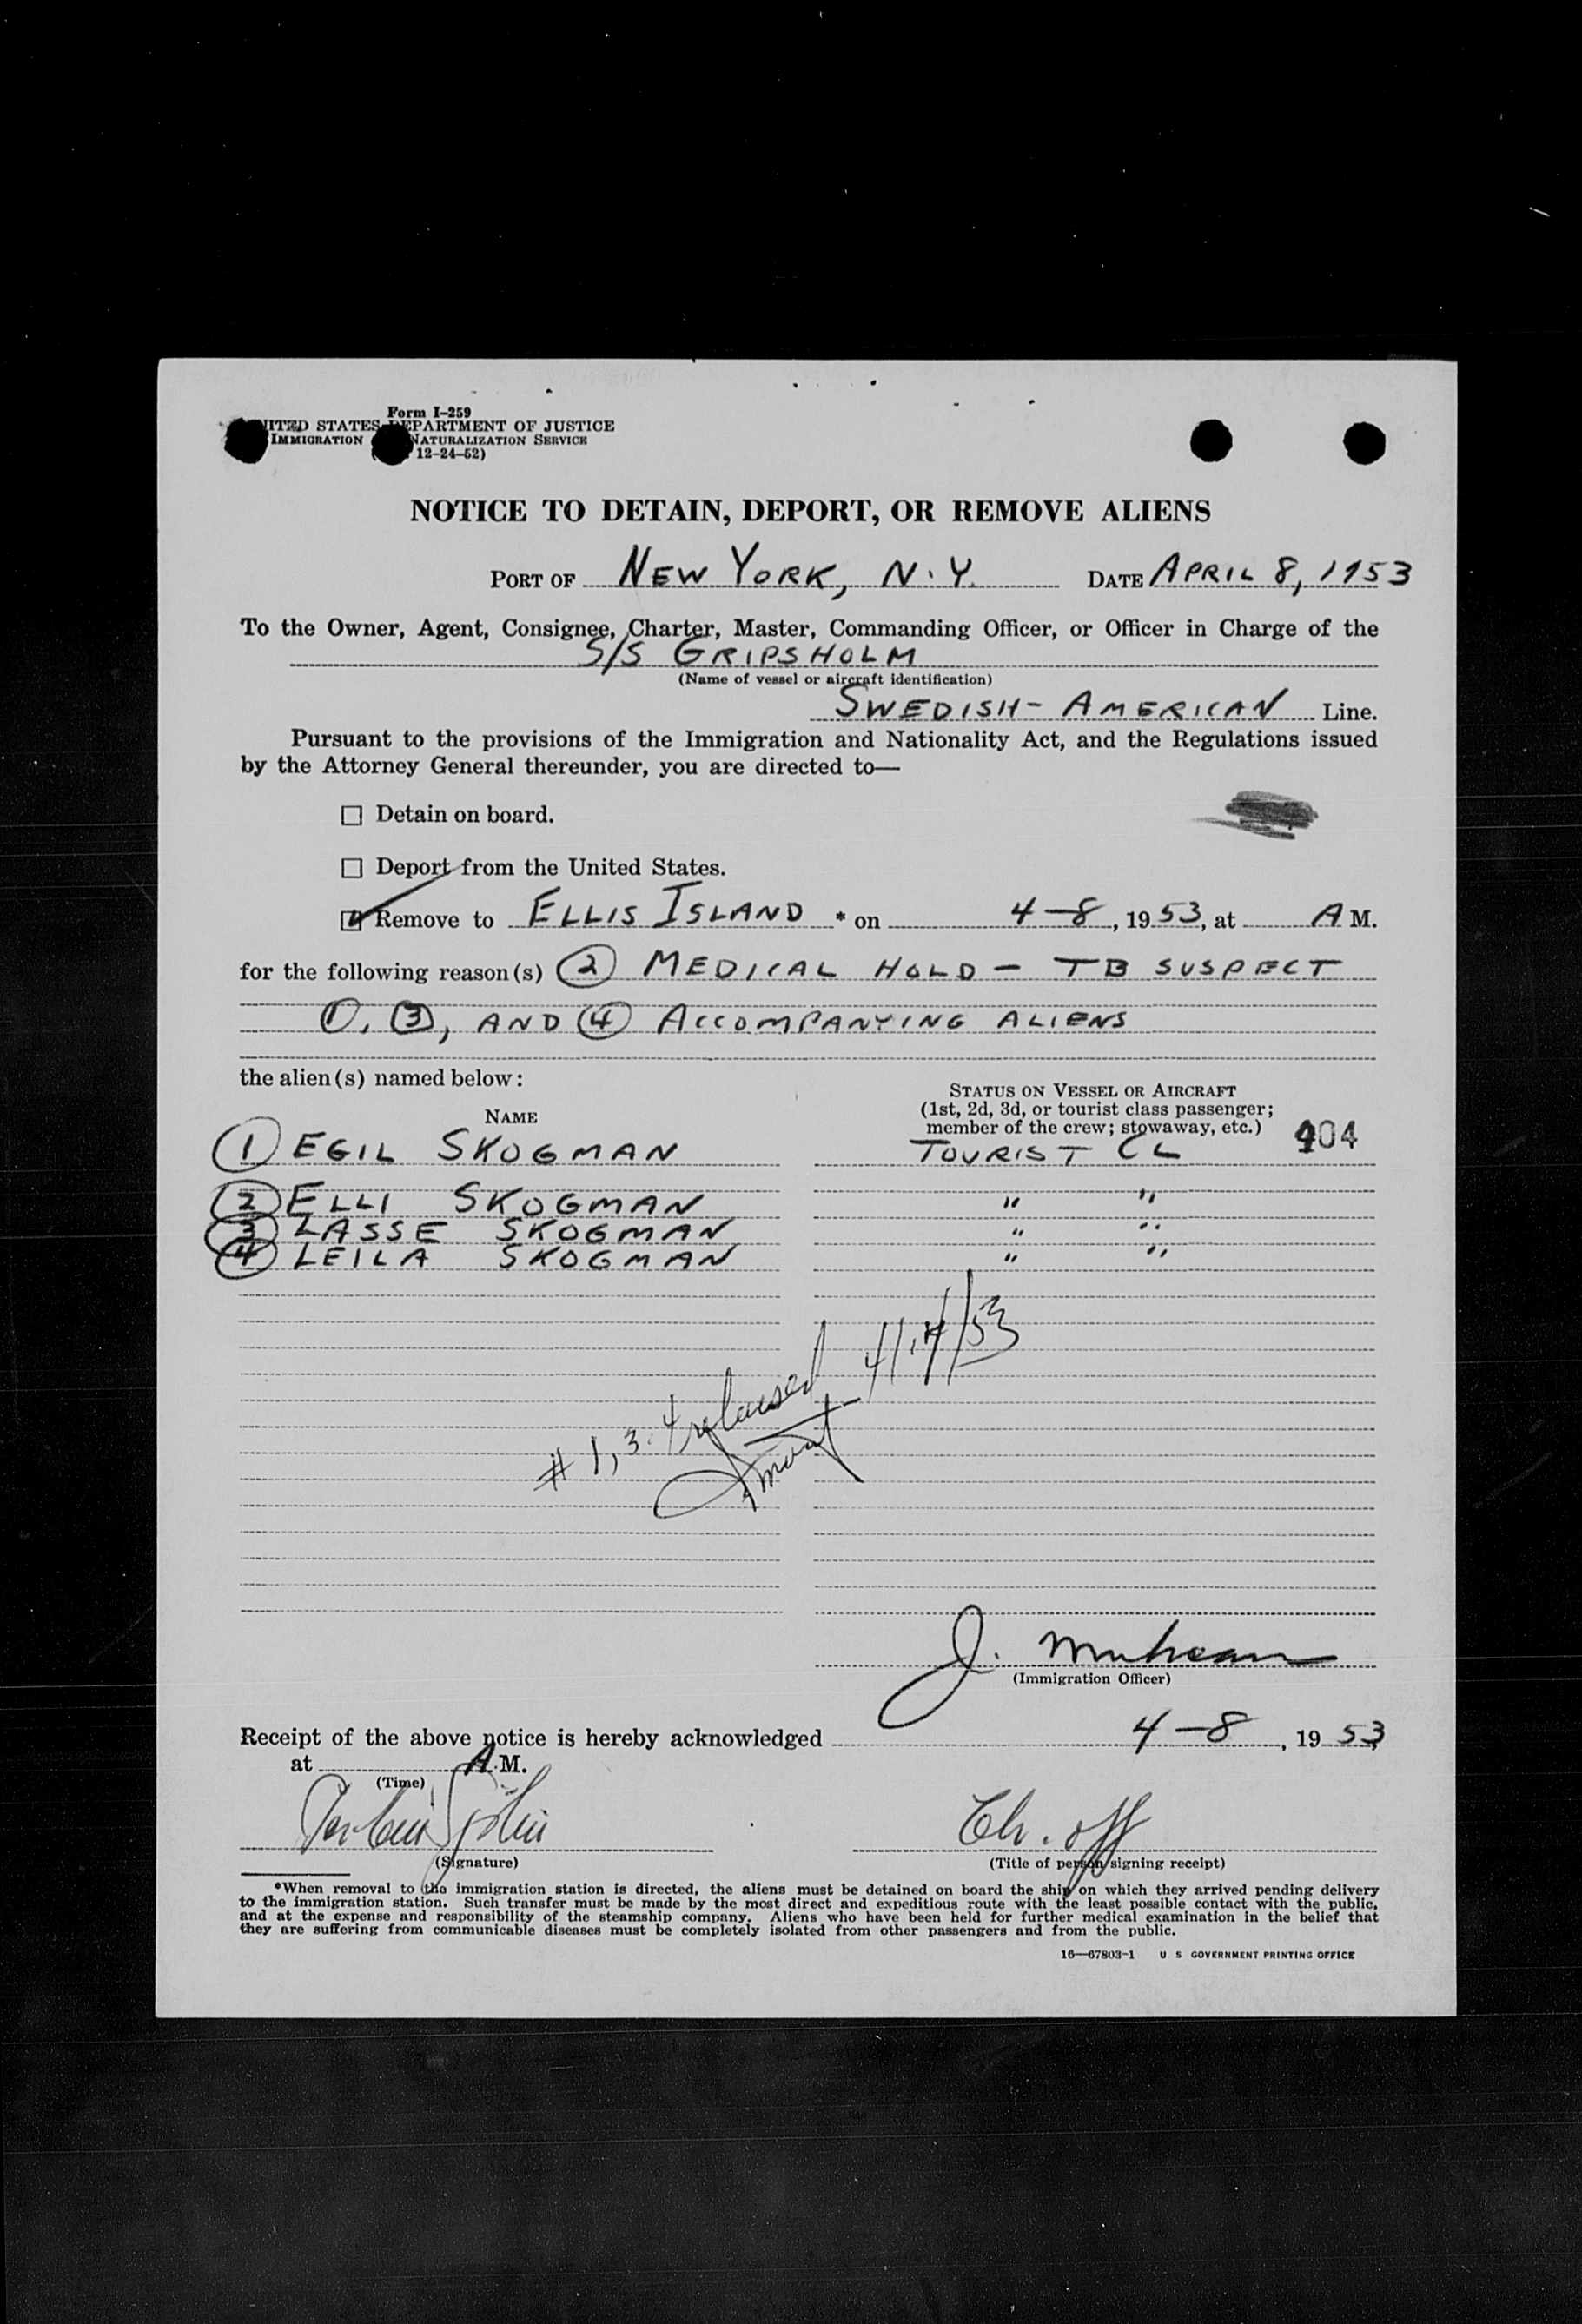 Form I-259
UNITED STATES DEPARTMENT OF JUSTICE
IMMIGRATION NATURALIZATION SERVICE
12-24-52)
NOTICE TO DETAIN, DEPORT, OR REMOVE ALIENS
PORT OF NEW YORK, N.Y. DATE APRIL 8, 1953
To the Owner, Agent, Consignee, Charter, Master, Commanding Officer, or Officer in Charge of the
S/S GRIPSHOLM
(Name of vessel or aircraft identification)
SWEDISH-AMERICAN Line.
Pursuant to the provisions of the Immigration and Nationality Act, and the Regulations issued
by the Attorney General thereunder, you are directed to—
☐ Detain on board.
☐ Deport from the United States.
☑ Remove to ELLIS ISLAND * on 4-8, 1953, at A M.
for the following reason(s) ② MEDICAL HOLD - TB SUSPECT
①, ③, AND ④ ACCOMPANYING ALIENS
the alien(s) named below:
NAME
STATUS ON VESSEL OR AIRCRAFT
(1st, 2d, 3d, or tourist class passenger;
member of the crew; stowaway, etc.) 404
① EGIL SKOGMAN TOURIST CL
② ELLI SKOGMAN " "
③ LASSE SKOGMAN " "
④ LEILA SKOGMAN " "
# 1, 3. 4 released 4/14/53
J.
(Immigration Officer)
Receipt of the above notice is hereby acknowledged 4-8, 1953
at A.M.
(Time)
(Signature)
Ch. off
(Title of person signing receipt)
*When removal to the immigration station is directed, the aliens must be detained on board the ship on which they arrived pending delivery
to the immigration station. Such transfer must be made by the most direct and expeditious route with the least possible contact with the public,
and at the expense and responsibility of the steamship company. Aliens who have been held for further medical examination in the belief that
they are suffering from communicable diseases must be completely isolated from other passengers and from the public.
16—67803-1 U. S. GOVERNMENT PRINTING OFFICE